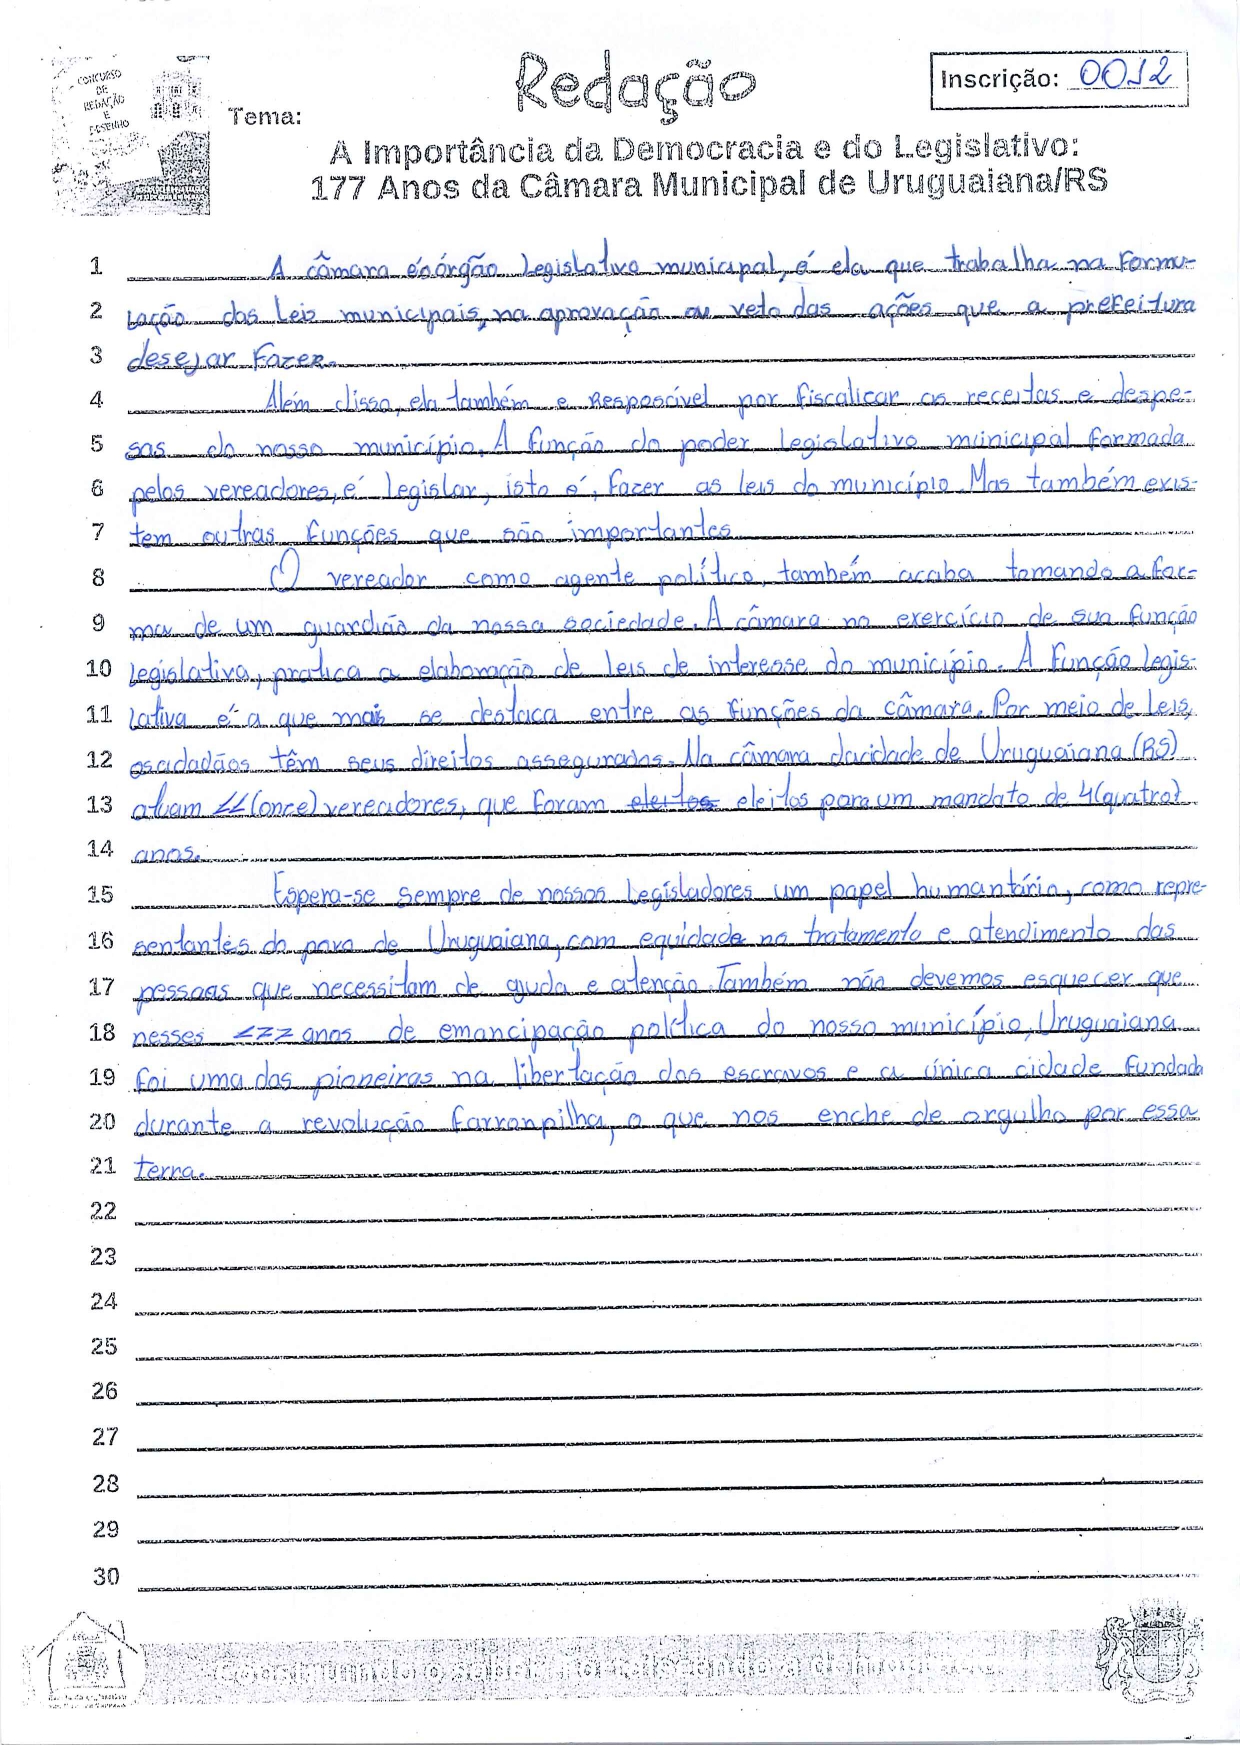 CONCURSO
DE
REDAÇÃO
E
DESENHO
Redação
Inscrição: 0012
Tema:
A Importância da Democracia e do Legislativo:
177 Anos da Câmara Municipal de Uruguaiana/RS
1 A câmara é o órgão legislativo municipal, é ela que trabalha na formu-
2 lação das leis municipais, na aprovação ou veto das ações que a prefeitura
3 desejar fazer.
4 Além disso, ela também e Responsível por fiscalicar as receitas e despe-
5 sas do nosso município. A função do poder legislativo municipal formada
6 pelos vereadores, é legislar, isto é, fazer as leis do município. Mas também exis-
7 tem outras funções que são importantes
8 O vereador como agente político, também acaba tomando a for-
9 ma de um guardião da nossa sociedade. A câmara no exercício de sua função
10 legislativa, pratica a elaboração de leis de interesse do município. A função legis-
11 lativa é a que mais se destaca entre as funções da câmara. Por meio de leis,
12 oscidadãos têm seus direitos assegurados. Na câmara dacidade de Uruguaiana (RS)
13 atuam 11 (once) vereadores, que foram eleitos eleitos para um mandato de 4 (quatro)
14 anos.
15 Espera-se sempre de nossos legisladores um papel humantário, como repre-
16 sentantes do povo de Uruguaiana, com equidade no tratamento e atendimento das
17 pessoas que necessitam de ajuda e atenção. Também não devemos esquecer que
18 nesses 177 anos de emancipação política do nosso município, Uruguaiana
19 foi uma das pioneiras na libertação dos escravos e a única cidade fundada
20 durante a revolução farroupilha, o que nos enche de orgulho por essa
21 terra.
22
23
24
25
26
27
28
29
30